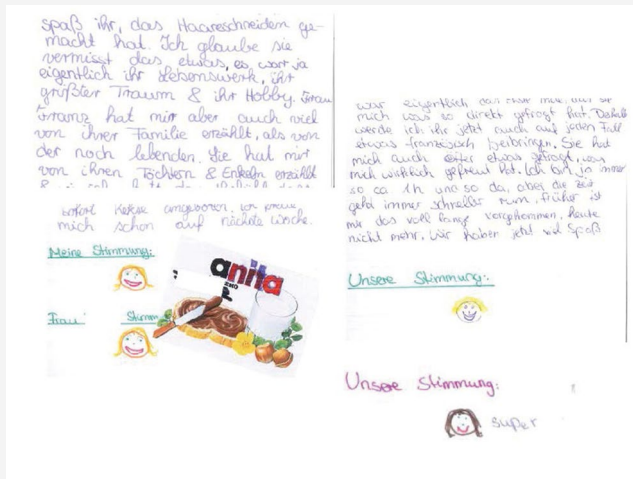 spaß ihr, das Haareschneiden ge-
macht hat. Ich glaube sie
vermisst das etwas, es, war ja
eigentlich ihr Lebenswerk, ihr
größter Traum & ihr Hobby. Frau
Franz hat mir aber auch viel
von ihrer Familie erzählt, als von
der noch lebenden. Sie hat mir
von ihren Töchtern & Enkeln erzählt
sofort Kekse angeboten, ich freue
mich schon auf nächste Woche.
Meine Stimmung:
Frau: Stimm
anita
war eigentlich das erste mal, das sie
mich was so direkt gefragt hat. Deshalb
werde ich ihr jetzt auch auf jeden Fall
etwas französisch beibringen. Sie hat
mich auch öfter etwas gefragt, was
mich wirklich gefreut hat. Ich bin ja immer
so ca. 1h und so da, aber die Zeit
geht immer schneller rum, früher ist
mir das voll lange vorgekommen, heute
nicht mehr. Wir haben jetzt viel Spaß
Unsere Stimmung:
Unsere Stimmung:
super